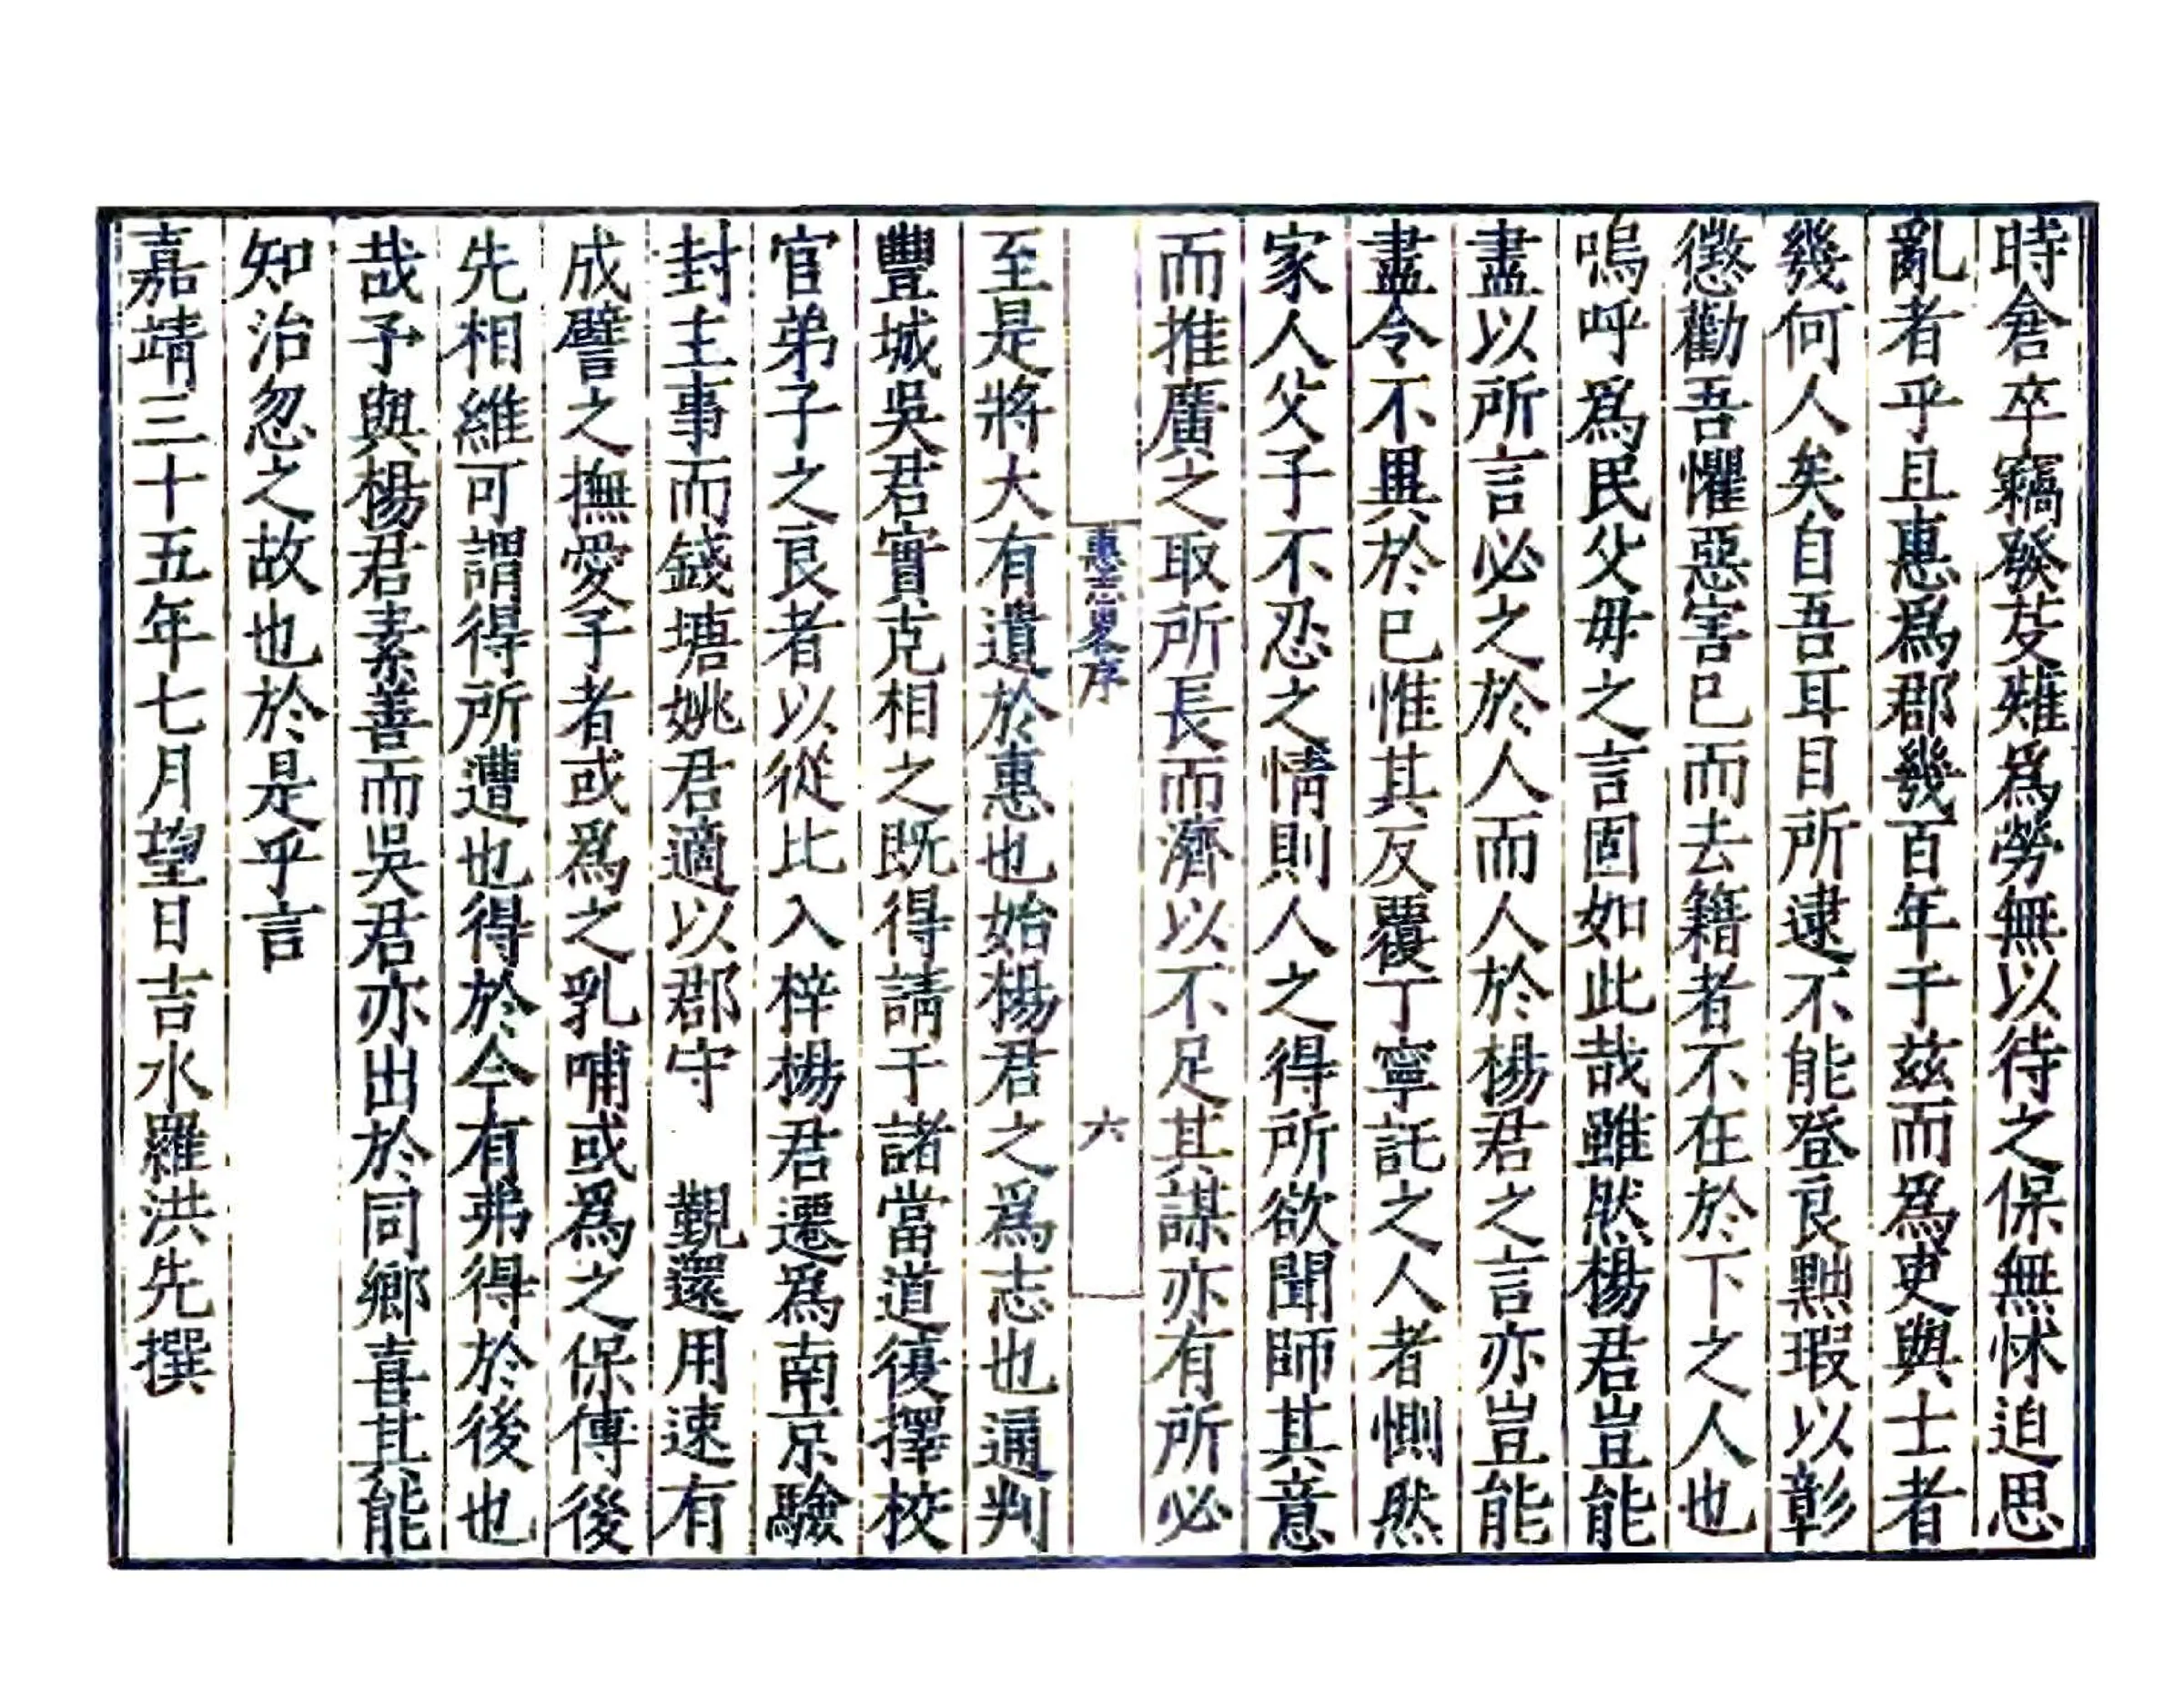 時倉卒竊發芟薙爲勞無以待之保無怵迫思
亂者乎且惠爲郡幾百年于兹而爲吏與士者
幾何人矣自吾耳目所逮不能登良黜瑕以彰
懲勸吾懼惡害已而去籍者不在於下之人也
嗚呼爲民父毋之言固如此哉雖然楊君豈能
盡以所言必之於人而人於楊君之言亦豈能
盡令不異於已惟其反覆丁寧託之人者惻然
家人父子不忍之情則人之得所欲聞師其意
而推廣之取所長而濟以不足其謀亦有所必
惠志畧序
六
至是將大有遺於惠也始楊君之爲志也通判
豐城吳君實克相之既得請于諸當道復擇校
官弟子之良者以從比入梓楊君遷爲南京驗
封主事而錢塘姚君適以郡守 覲還用速有
成譬之撫愛子者或爲之乳哺或爲之保傅後
先相維可謂得所遭也得於今有弗得於後也
哉予與楊君素善而吳君亦出於同鄉喜其能
知治忽之故也於是乎言
嘉靖三十五年七月望日吉水羅洪先撰